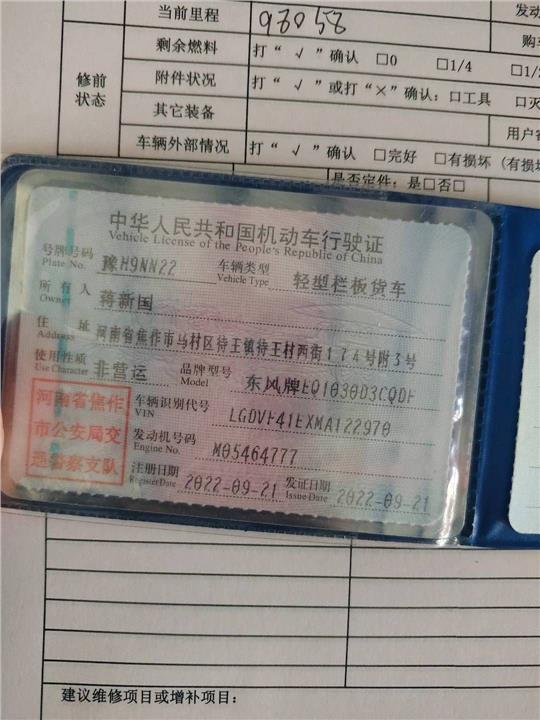 当前里程 98058
剩余燃料 打“√”确认 □0 □1/4
修前状态
附件状况 打“√”或打“×”确认：□工具
其它装备
用户
车辆外部情况 打“√”确认 □完好 □有损坏（有损
是否定件：是□否□
中华人民共和国机动车行驶证
Vehicle License of the People's Republic of China
号牌号码 Plate No. 豫H9NN22 车辆类型 Vehicle Type 轻型栏板货车
所有人 Owner 蒋新国
住址 Address 河南省焦作市马村区待王镇待王村西街174号附3号
使用性质 Use Character 非营运 品牌型号 Model 东风牌EQ1030D3CQDF
河南省焦作
市公安局交
通警察支队
车辆识别代号 VIN LGDVF41EXMA122970
发动机号码 Engine No. M05464777
注册日期 Register Date 2022-09-21 发证日期 Issue Date 2022-09-21
建议维修项目或增补项目：